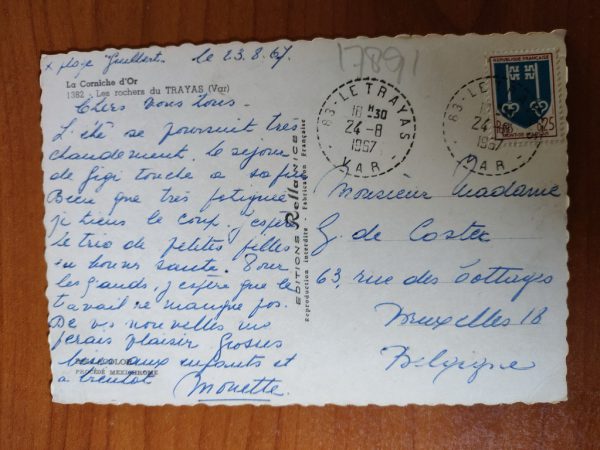 x plage Guilbert le 23.8.67
La Corniche d'Or
1382 - Les rochers du TRAYAS (Var)
Chers vous tous -
L'été se poursuit très
chaudement, le séjour
de gigi touche à sa fin
Bien que très fatiguée
je tiens le coup. J'espère
le trio de petites filles
en bonne santé. Pour
les grands, j'espère que le
travail ne manque pas.
De vos nouvelles me
ferais plaisir. Grosses
bises aux enfants et
à bientôt Mouette.
PROCÉDÉ MEXICHROME
EDITIONS Rella NICE
Reproduction interdite - Fabrication Française
17891
83 - LE TRAYAS
18 H30
24-8
1967
VAR
83 - LE TRAYAS
24-8
1967
VAR
REPUBLIQUE FRANÇAISE
0,25
Monsieur Madame
G. de Coster
63, rue des Cottages
Bruxelles 18
Belgique